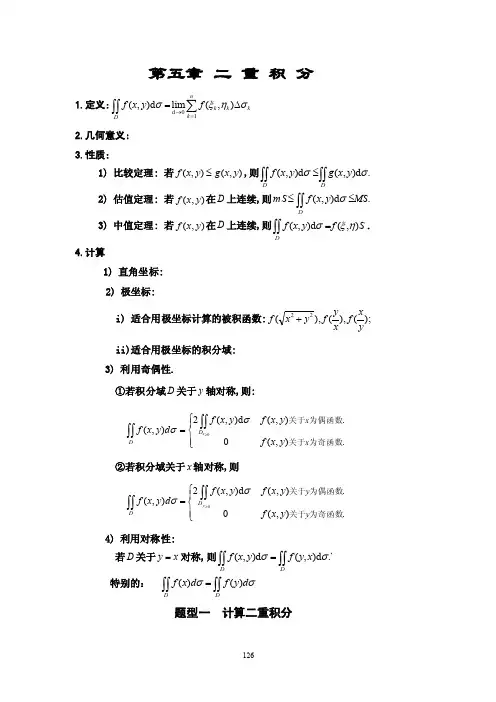 第五章 二 重 积 分
1.定义: $\iint\limits_D f(x,y)\mathrm{d}\sigma=\lim\limits_{d\to 0}\sum\limits_{k=1}^{n} f(\xi_k,\eta_k)\Delta\sigma_k$
2.几何意义:
3.性质:
1) 比较定理: 若 $f(x,y)\le g(x,y)$, 则 $\iint\limits_D f(x,y)\mathrm{d}\sigma\le\iint\limits_D g(x,y)\mathrm{d}\sigma.$
2) 估值定理: 若 $f(x,y)$ 在 $D$ 上连续,则 $mS\le\iint\limits_D f(x,y)\mathrm{d}\sigma\le MS.$
3) 中值定理: 若 $f(x,y)$ 在 $D$ 上连续,则 $\iint\limits_D f(x,y)\mathrm{d}\sigma=f(\xi,\eta)S$.
4.计算
1) 直角坐标:
2) 极坐标:
i) 适合用极坐标计算的被积函数: $f(\sqrt{x^2+y^2}),f(\frac{y}{x}),f(\frac{x}{y});$
ii)适合用极坐标的积分域:
3) 利用奇偶性.
①若积分域 $D$ 关于 $y$ 轴对称,则:
$\iint\limits_D f(x,y)d\sigma=\begin{cases}2\iint\limits_{D_{x\ge 0}} f(x,y)\mathrm{d}\sigma & f(x,y)\text{关于}x\text{为偶函数.}\\0 & f(x,y)\text{关于}x\text{为奇函数.}\end{cases}$
②若积分域关于 $x$ 轴对称,则
$\iint\limits_D f(x,y)d\sigma=\begin{cases}2\iint\limits_{D_{y\ge 0}} f(x,y)\mathrm{d}\sigma & f(x,y)\text{关于}y\text{为偶函数.}\\0 & f(x,y)\text{关于}y\text{为奇函数.}\end{cases}$
4) 利用对称性:
若 $D$ 关于 $y=x$ 对称,则 $\iint\limits_D f(x,y)\mathrm{d}\sigma=\iint\limits_D f(y,x)\mathrm{d}\sigma.$
特别的: $\iint\limits_D f(x)d\sigma=\iint\limits_D f(y)d\sigma$
题型一 计算二重积分
126